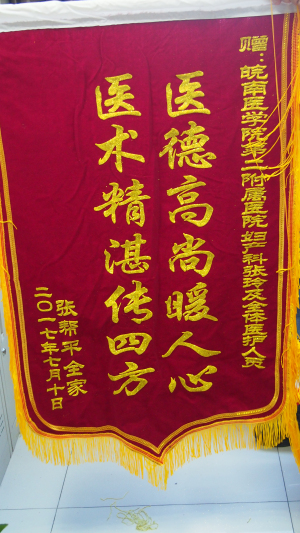 赠：皖南医学院第二附属医院妇产科张玲及全体医护人员
医德高尚暖人心
医术精湛传四方
张帮平全家
二〇一七年七月十日